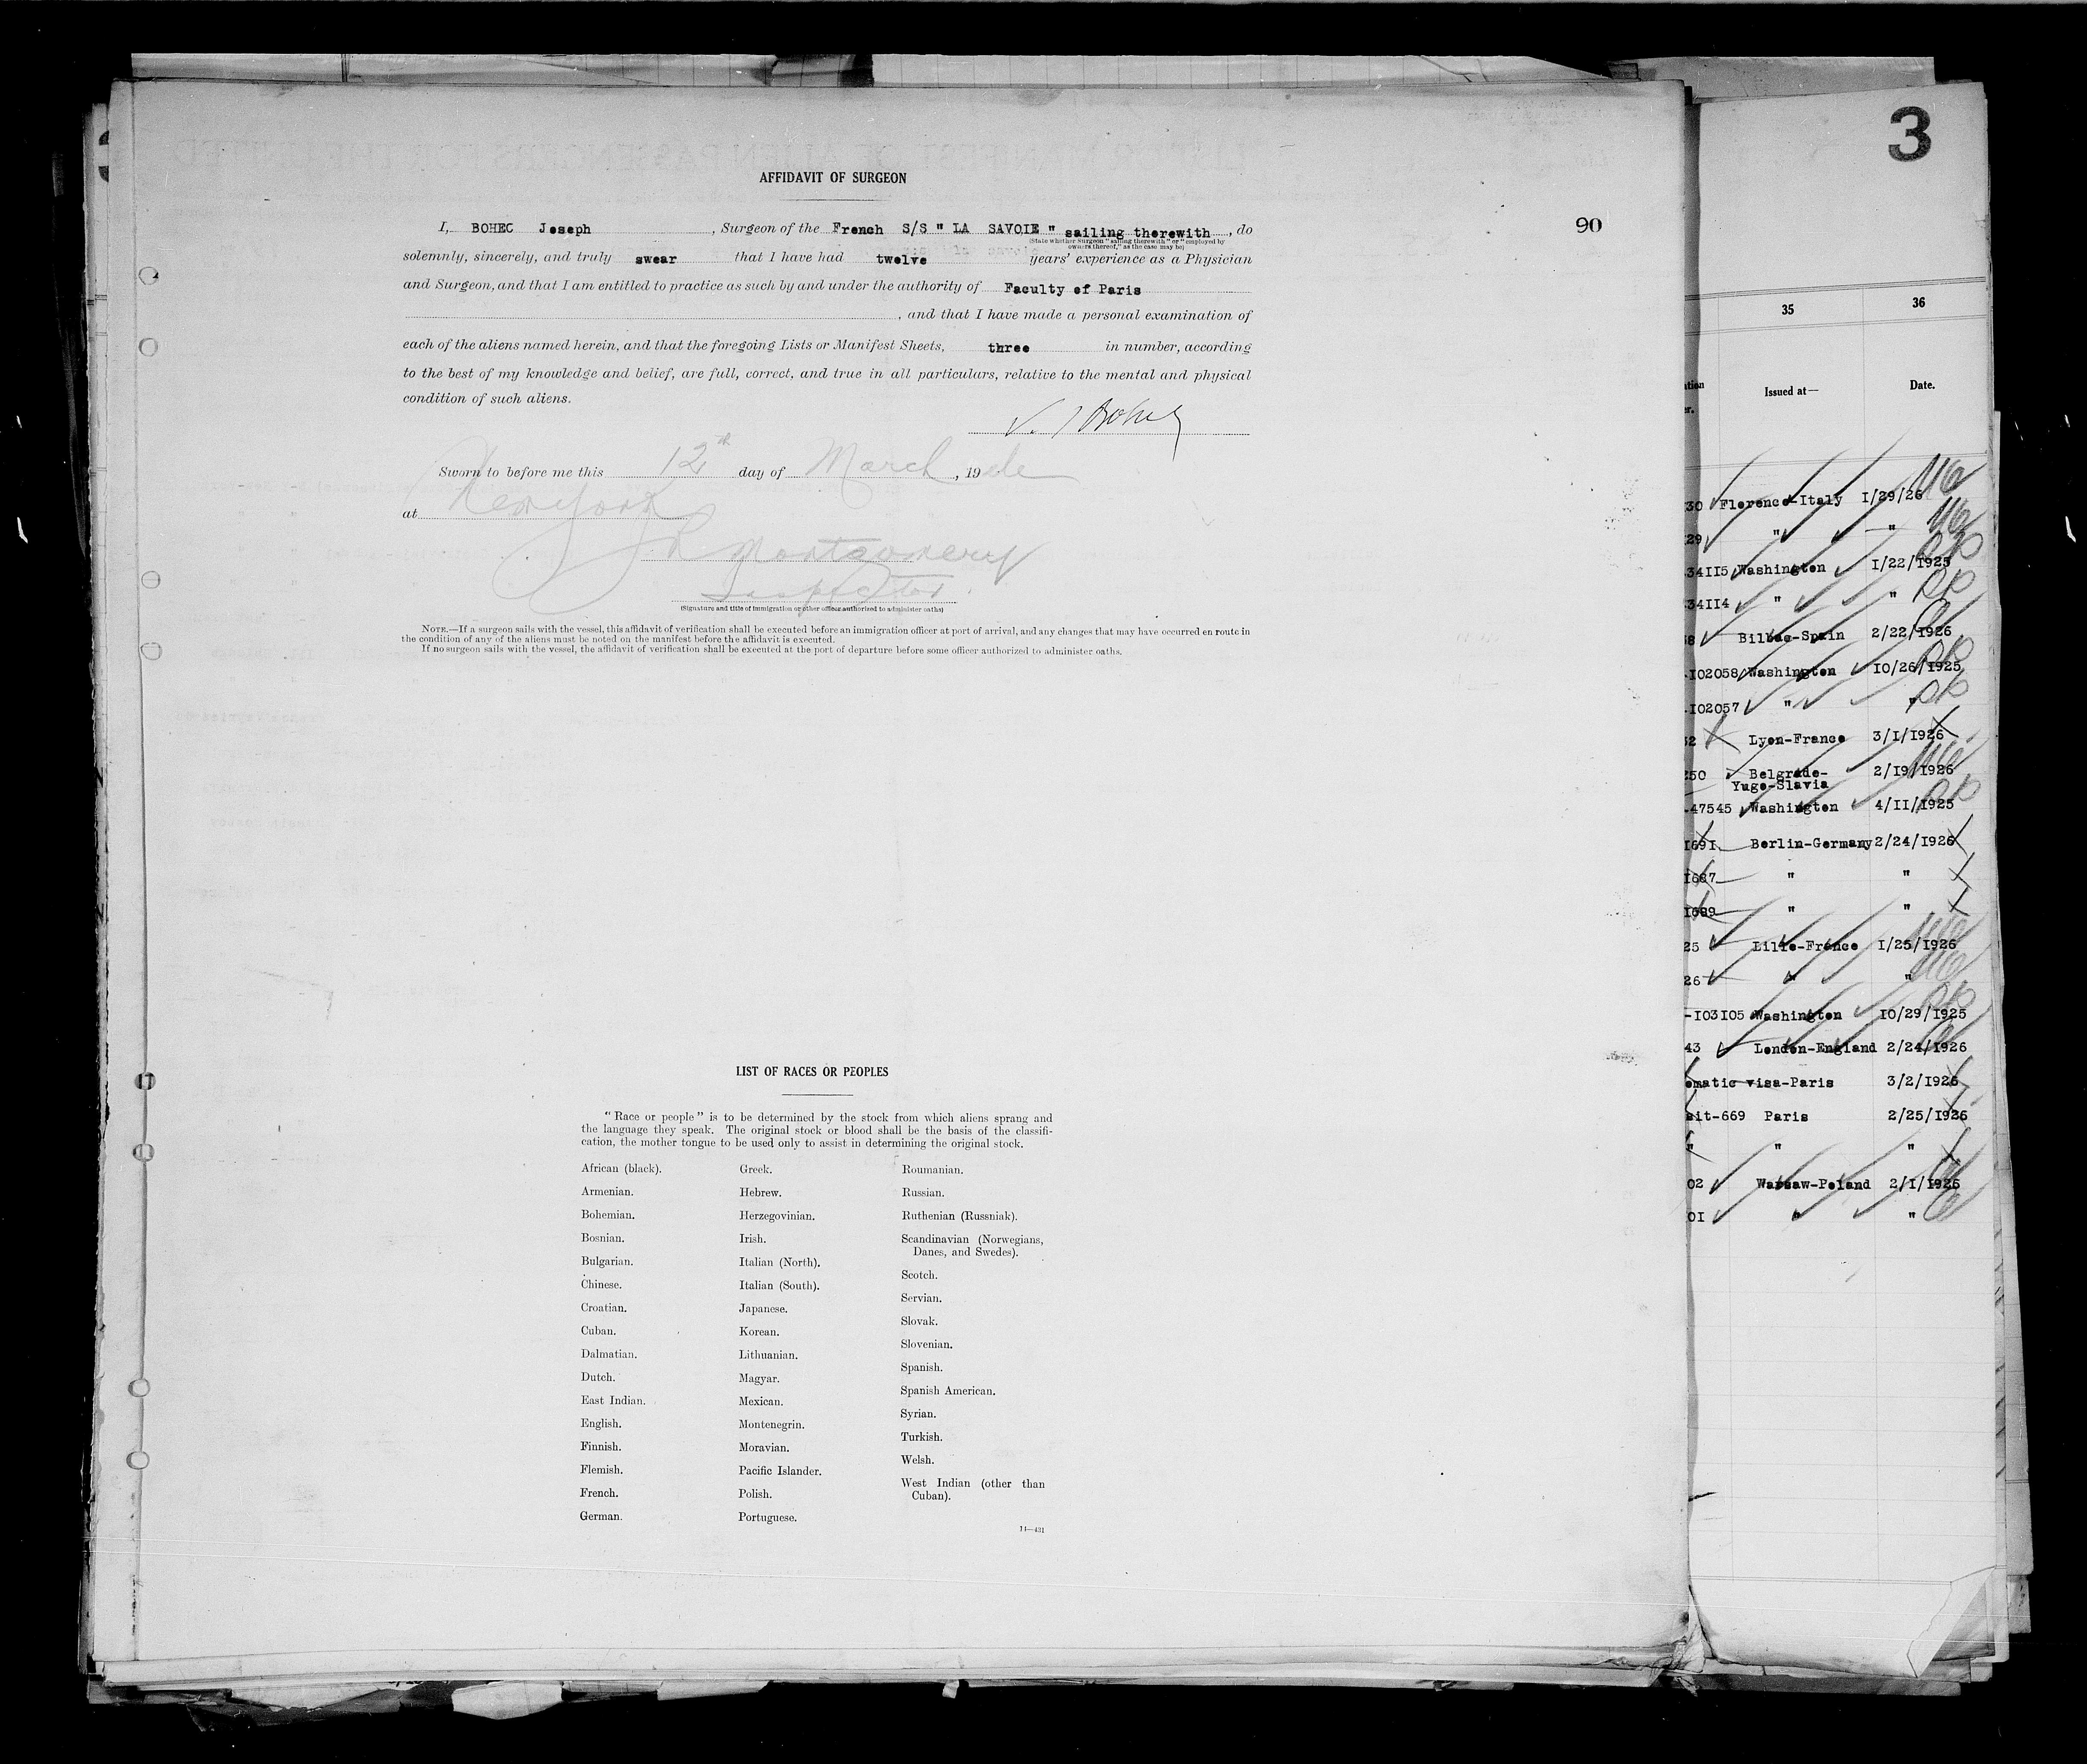 AFFIDAVIT OF SURGEON
90
I, BOHEC Joseph , Surgeon of the French S/S " LA SAVOIE " sailing therewith , do
(State whether Surgeon "sailing therewith" or "employed by owners thereof," as the case may be)
solemnly, sincerely, and truly swear that I have had twelve years' experience as a Physician
and Surgeon, and that I am entitled to practice as such by and under the authority of Faculty of Paris
, and that I have made a personal examination of
each of the aliens named herein, and that the foregoing Lists or Manifest Sheets, three in number, according
to the best of my knowledge and belief, are full, correct, and true in all particulars, relative to the mental and physical
condition of such aliens.
Sworn to before me this 12th day of March , 19
at New York
Montgomery
Inspector
(Signature and title of immigration or other officer authorized to administer oaths)
NOTE.—If a surgeon sails with the vessel, this affidavit of verification shall be executed before an immigration officer at port of arrival, and any changes that may have occurred en route in
the condition of any of the aliens must be noted on the manifest before the affidavit is executed.
If no surgeon sails with the vessel, the affidavit of verification shall be executed at the port of departure before some officer authorized to administer oaths.
LIST OF RACES OR PEOPLES
"Race or people" is to be determined by the stock from which aliens sprang and
the language they speak. The original stock or blood shall be the basis of the classifi-
cation, the mother tongue to be used only to assist in determining the original stock.
African (black).
Armenian.
Bohemian.
Bosnian.
Bulgarian.
Chinese.
Croatian.
Cuban.
Dalmatian.
Dutch.
East Indian.
English.
Finnish.
Flemish.
French.
German.
Greek.
Hebrew.
Herzegovinian.
Irish.
Italian (North).
Italian (South).
Japanese.
Korean.
Lithuanian.
Magyar.
Mexican.
Montenegrin.
Moravian.
Pacific Islander.
Polish.
Portuguese.
Roumanian.
Russian.
Ruthenian (Russniak).
Scandinavian (Norwegians,
Danes, and Swedes).
Scotch.
Servian.
Slovak.
Slovenian.
Spanish.
Spanish American.
Syrian.
Turkish.
Welsh.
West Indian (other than
Cuban).
14—431
3
35 36
Issued at— Date.
30 Florence-Italy I/29/26
29 " "
34II5 Washington I/22/1925
34II4 " "
8 Bilbao-Spain 2/22/1926
-I02058 Washington I0/26/1925
-I02057 " "
2 Lyon-France 3/I/1926
50 Belgrade- 2/19/1926
Yugo-Slavia
-47545 Washington 4/II/1925
I69I Berlin-Germany 2/24/1926
I687 " "
I689 " "
25 Lille-France I/25/1926
26 " "
-I03I05 Washington I0/29/1925
43 London-England 2/24/1926
omatic visa-Paris 3/2/1926
sit-669 Paris 2/25/1926
" " "
02 Warsaw-Poland 2/I/1926
0I " "